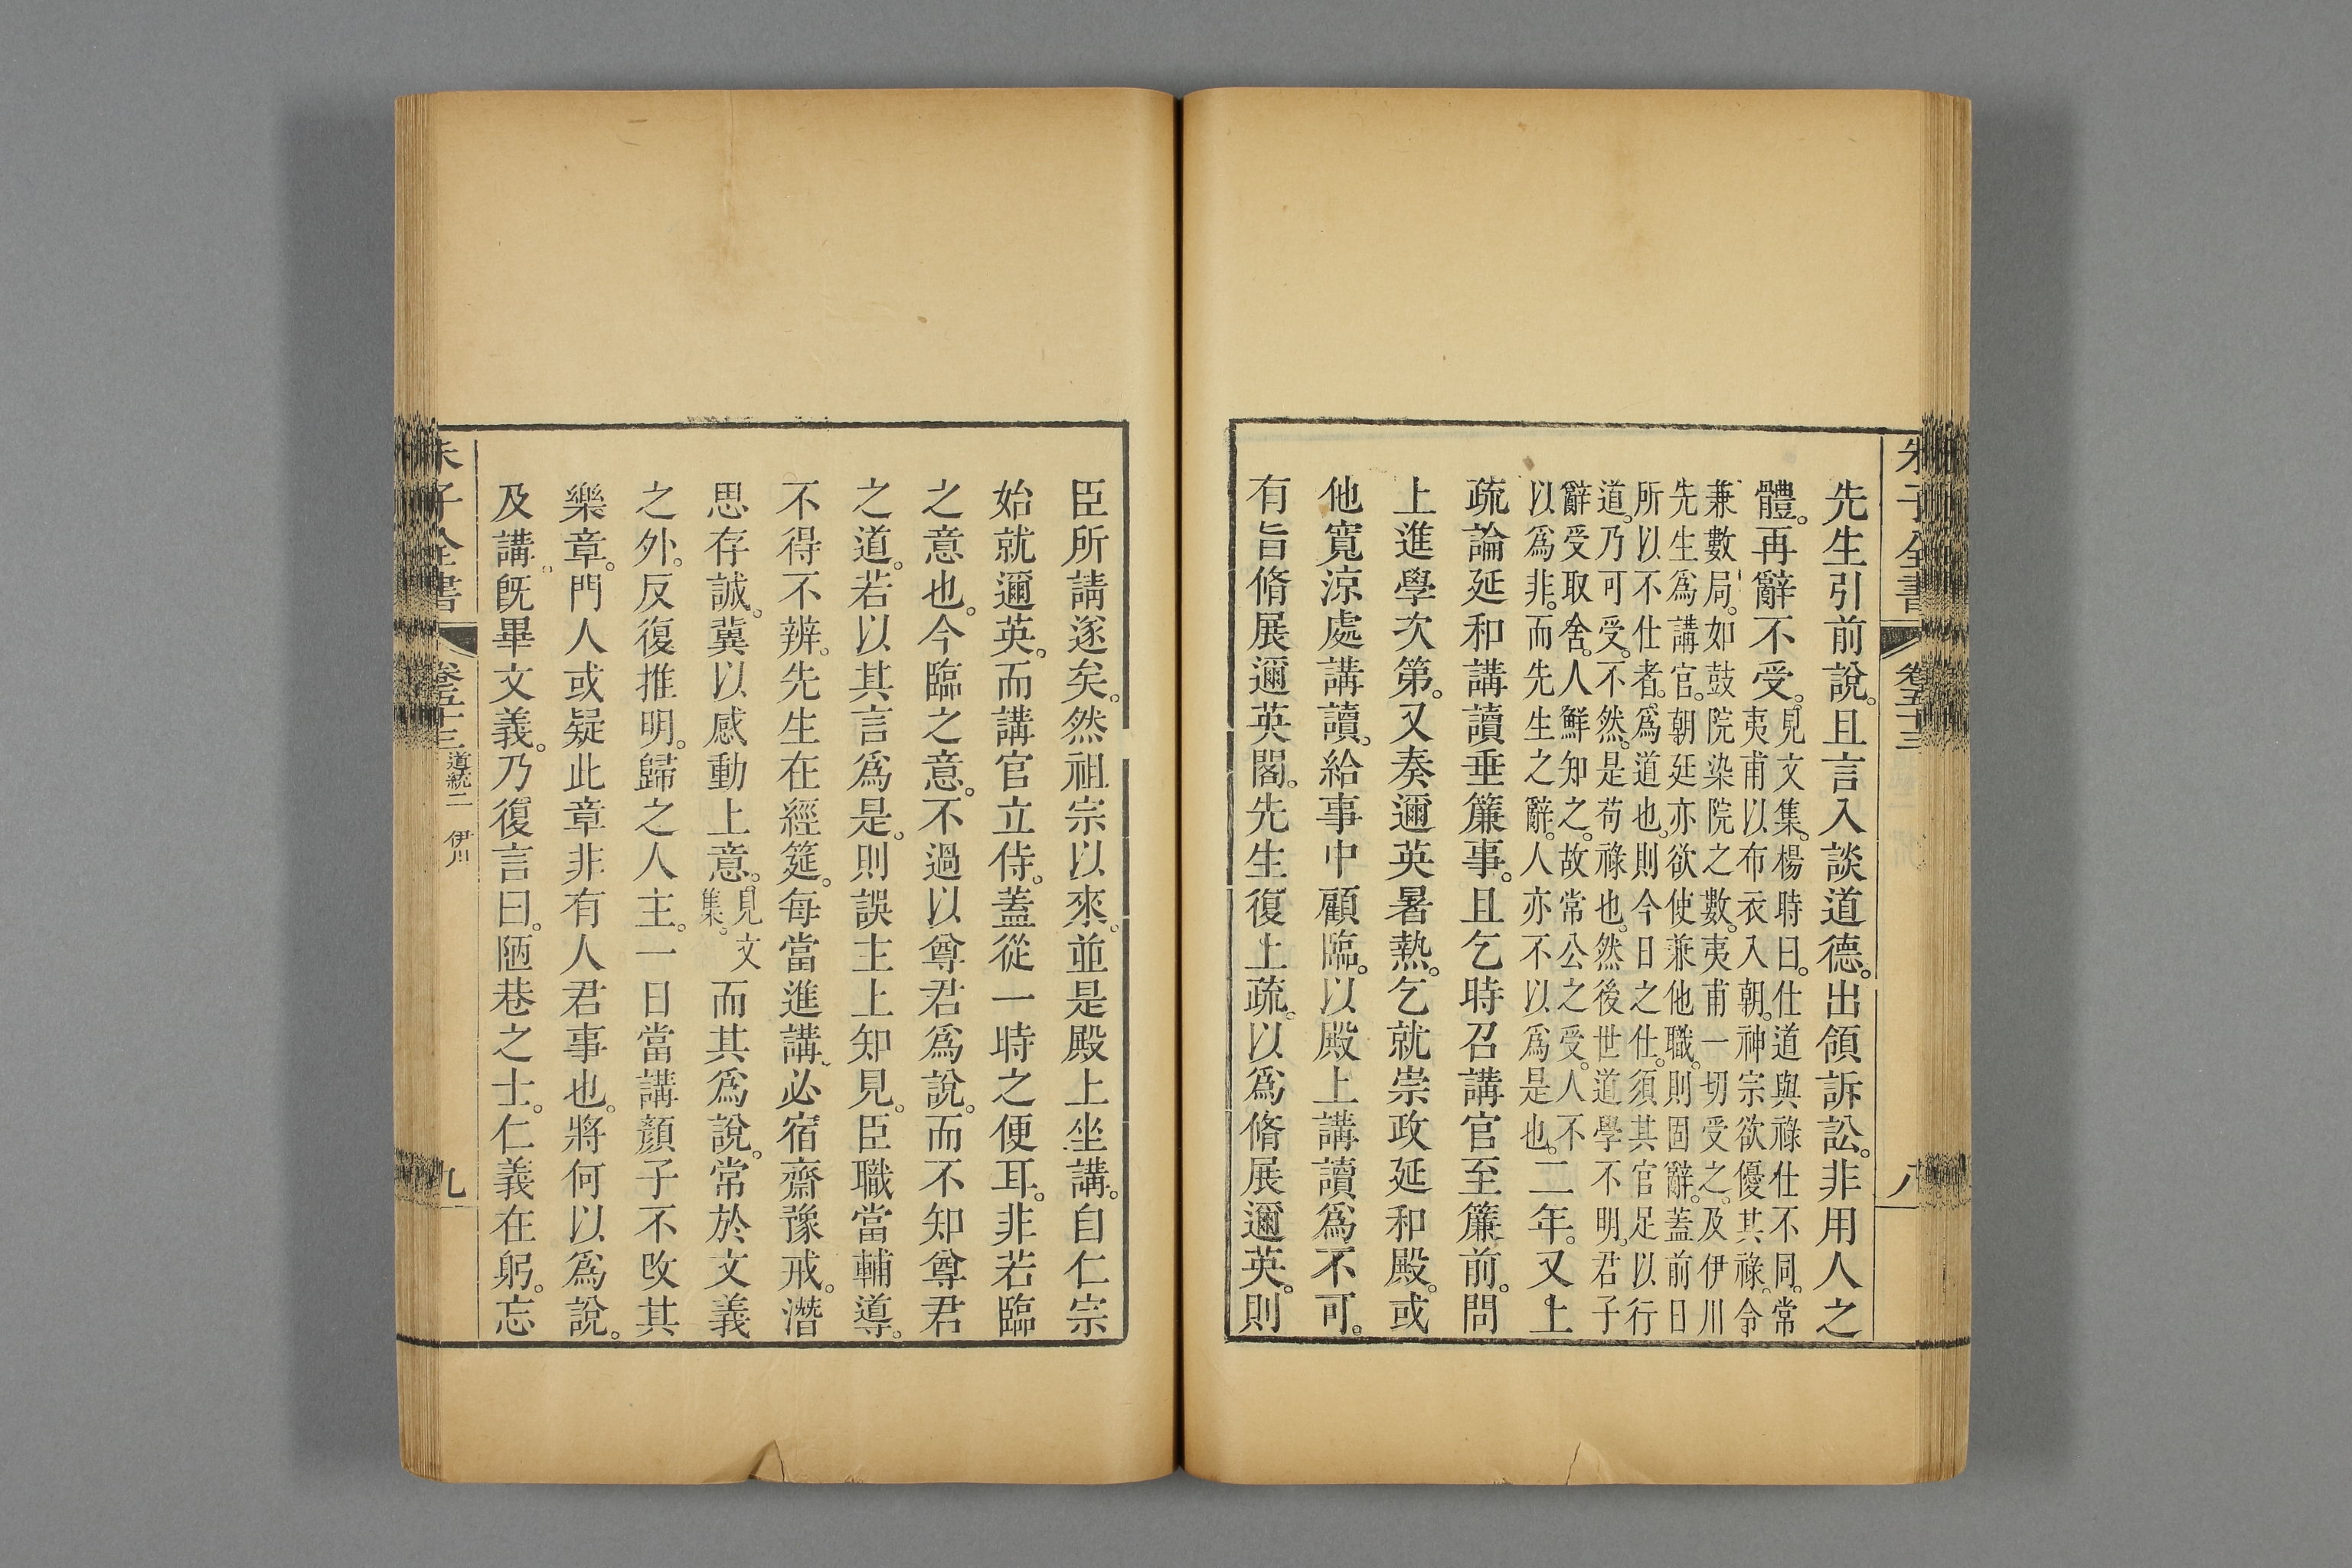 朱子全書 卷五十三 八
先生引前說。且言入談道德。出領訴訟。非用人之
體。再辭不受。見文集。楊時曰。仕道與祿仕不同。常
夷甫以布衣入朝。神宗欲優其祿。令
兼數局。如鼓院染院之數。夷甫一切受之。及伊川
先生爲講官。朝廷亦欲使兼他職。則固辭。蓋前日
所以不仕者。爲道也。則今日之仕。須其官足以行
道。乃可受。不然。是苟祿也。然後世道學不明。君子
辭受取舍。人鮮知之。故常公之受。人不
以爲非。而先生之辭。人亦不以爲是也。二年。又上
疏論延和講讀垂簾事。且乞時召講官至簾前。問
上進學次第。又奏邇英暑熱。乞就崇政延和殿。或
他寬涼處講讀。給事中顧臨。以殿上講讀爲不可。
有旨脩展邇英閣。先生復上疏。以爲脩展邇英。則
臣所請遂矣。然祖宗以來。並是殿上坐講。自仁宗
始就邇英。而講官立侍。蓋從一時之便耳。非若臨
之意也。今臨之意。不過以尊君爲說。而不知尊君
之道。若以其言爲是。則誤主上知見。臣職當輔導。
不得不辨。先生在經筵。每當進講。必宿齋豫戒。潛
思存誠。冀以感動上意。見文集。而其爲說。常於文義
之外。反復推明。歸之人主。一日當講顏子不改其
樂章。門人或疑此章非有人君事也。將何以爲說。
及講。旣畢文義。乃復言曰。陋巷之士。仁義在躬。忘
朱子全書 卷五十三 道統二 伊川 九